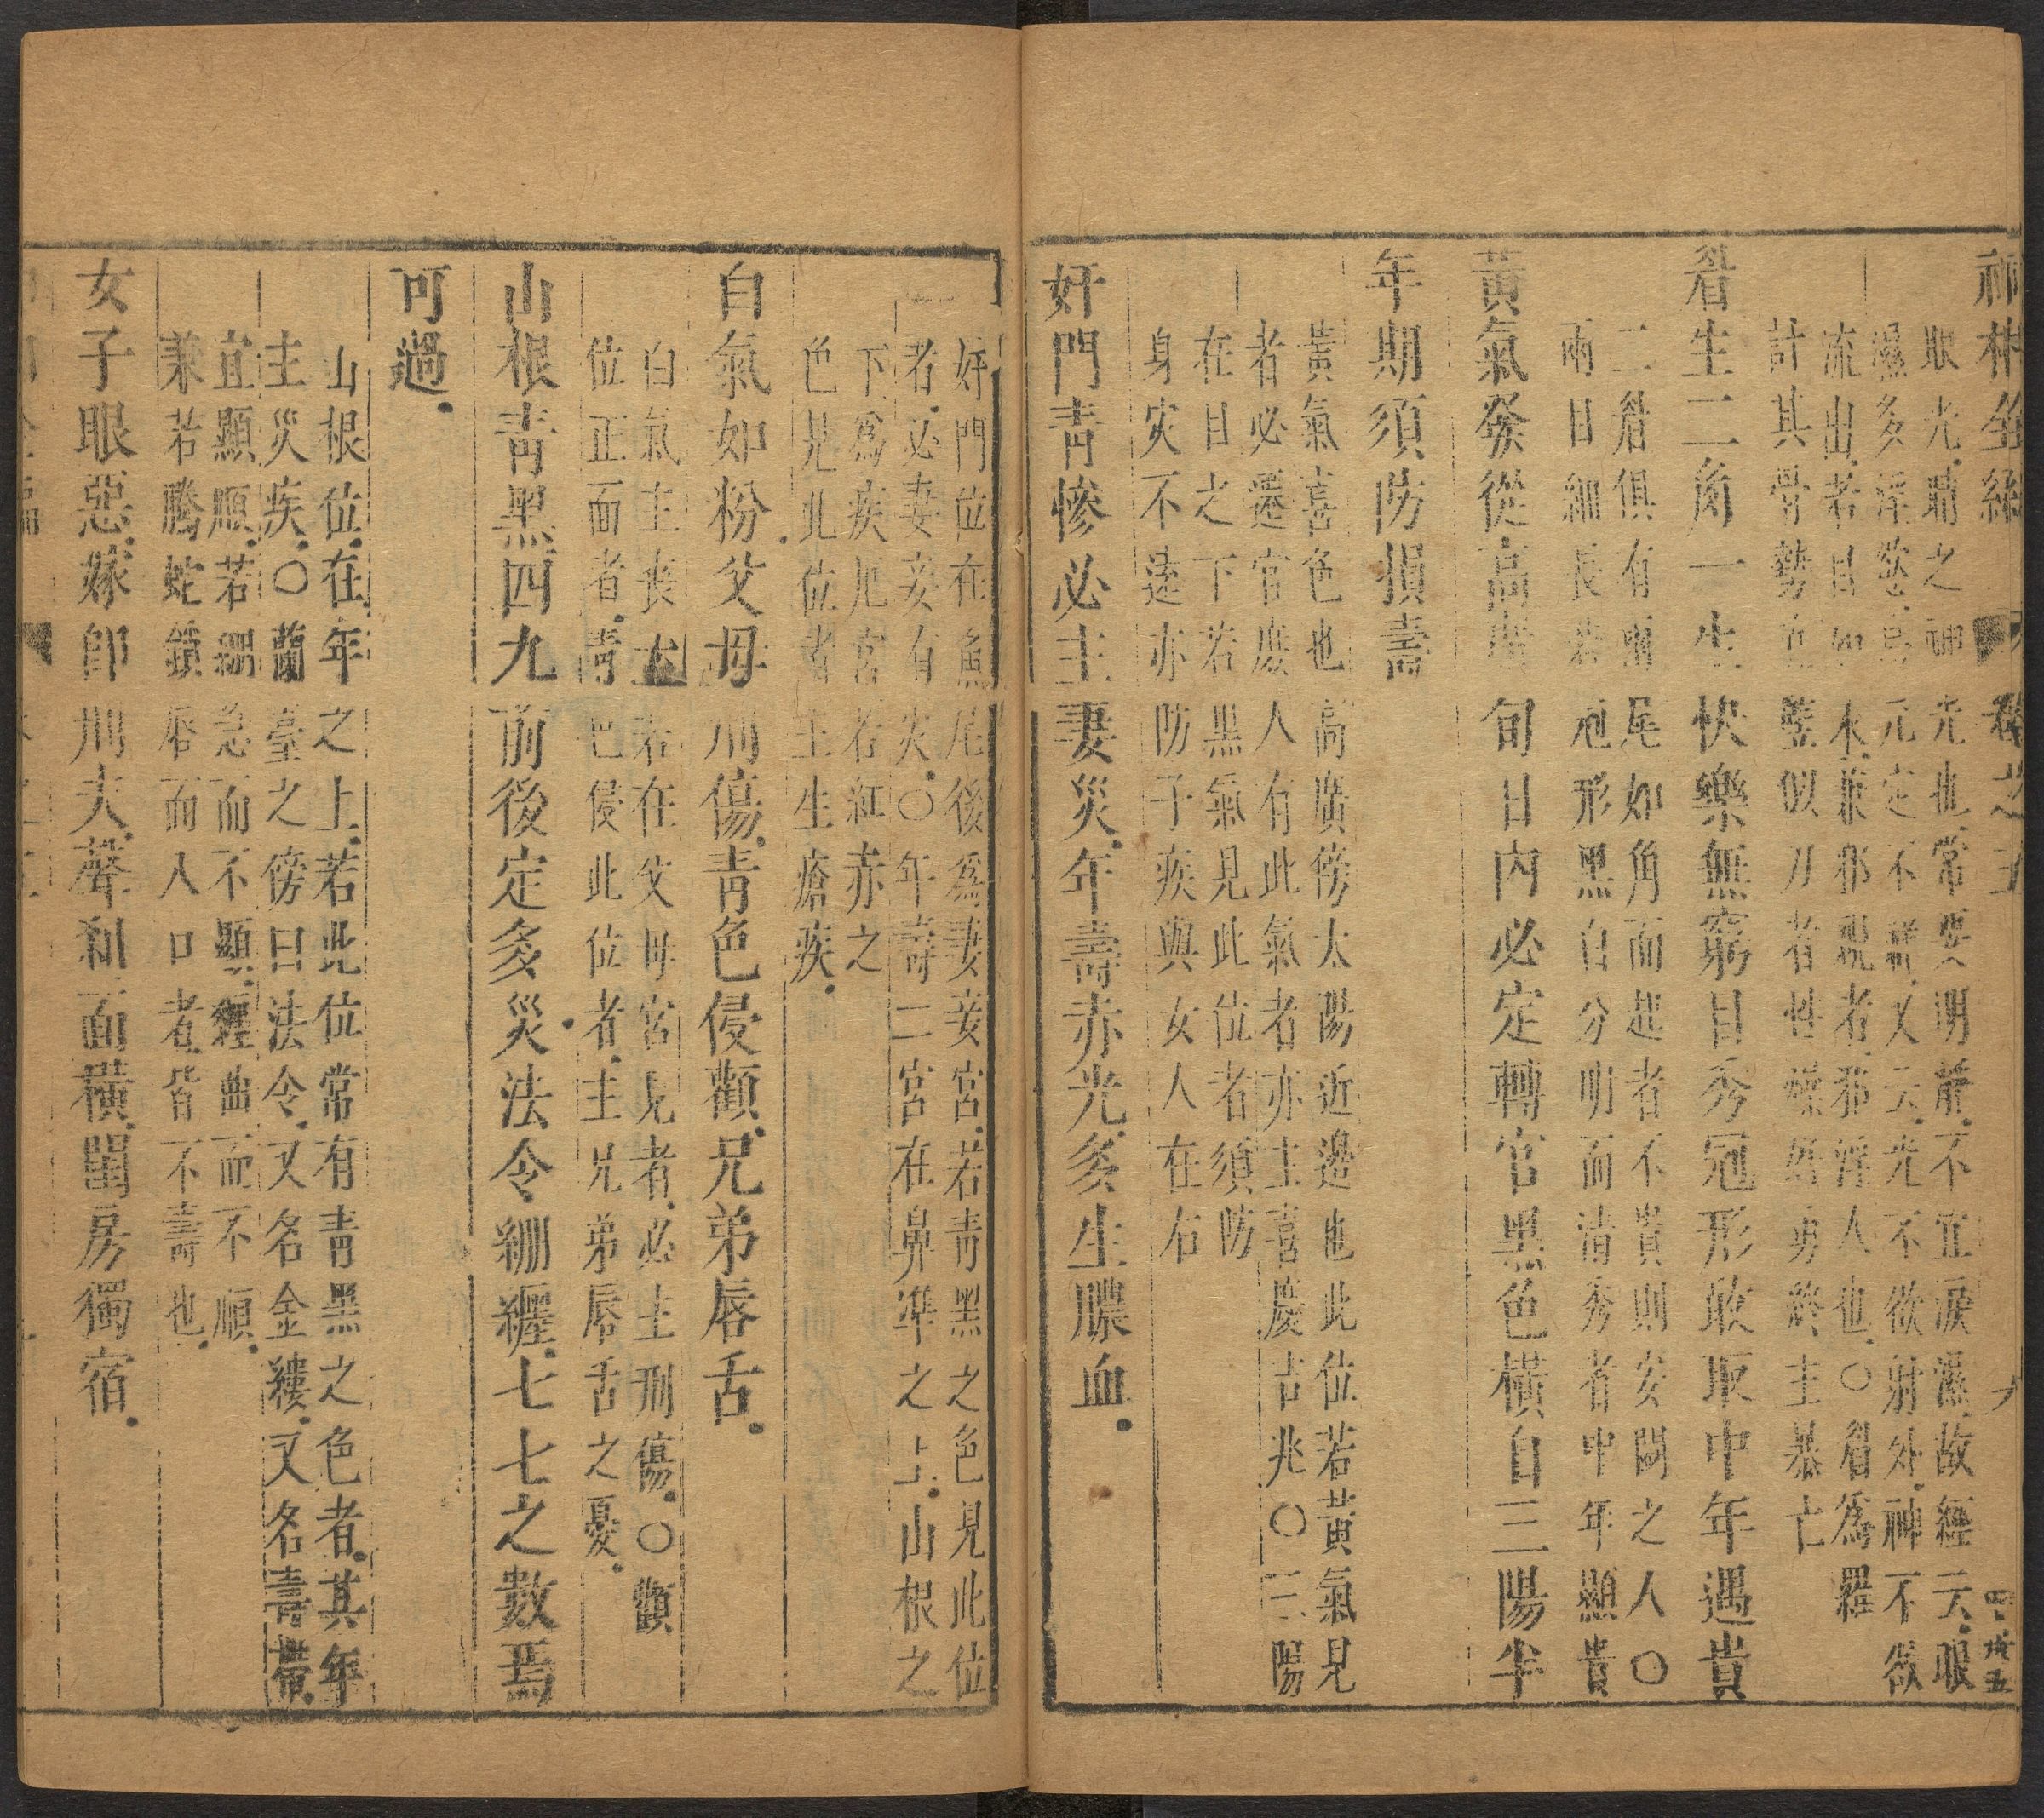 神相金
卷之
眼光睛之神光也常要明靜不宜淚濕故經云眼
濕多淫慾烏元定不又云光不欲射外神不欲
流出若目如水兼邪視者邪淫人也〇眉為羅
計其骨勢直豎似刀者性燥好勇終主暴亡
眉生二角一生快樂無窮目秀冠形敢取中年遇貴
二眉俱有兩尾如角而起者不貴則安閑之人〇
兩目細長若冠形黑白分明而清秀者中年顯貴
黃氣發從高廣旬日內必定轉官黑色橫自三陽半
年期須防損壽
黃氣喜色也高廣傍太陽近邊也此位若黃氣見
者必遷官庶人有此氣者亦主喜慶吉兆〇三陽
在目之下若黑氣見此位者須防
身灾不遠亦防子疾與女人在右
奸門青慘必主妻災年壽赤光多生膿血
奸門位在魚尾後為妻妾宮若青黑之色見此位
者必妻妾有灾〇年壽二宮在鼻準之上山根之
下為疾厄宮若紅赤之
色見此位者主生瘡疾
白氣如粉父母刑傷青色侵顴兄弟唇舌
白氣主喪若在父母宮見者必主刑傷〇顴
位正面者青色侵此位者主兄弟唇舌之憂
山根青黑四九前後定多災法令繃纏七七之數焉
可過
山根位在年之上若此位常有青黑之色者其年
主災疾〇蘭臺之傍曰法令又名金縷又名壽帶
宜顯順若繃急而不顯纏曲而不順
兼若騰蛇鎖唇而入口者皆不壽也
女子眼惡嫁即刑夫聲殺面橫閨房獨宿